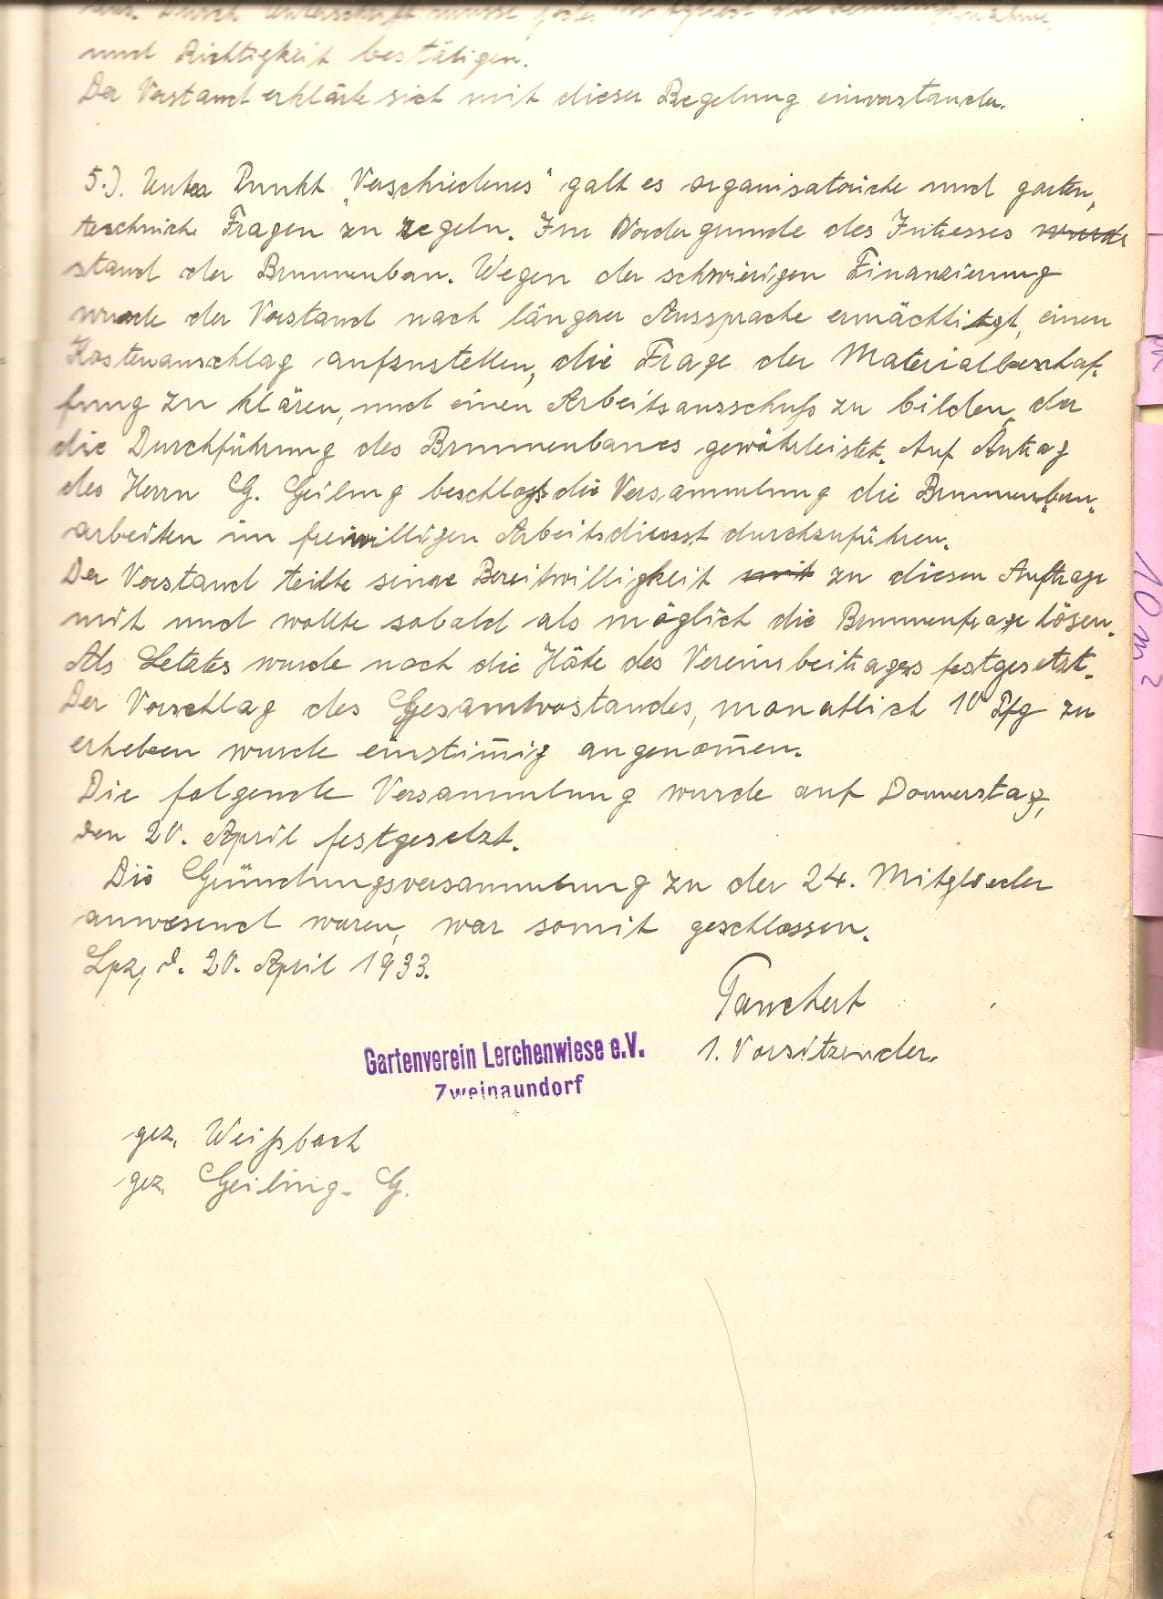 und Richtigkeit bestätigen.
Der Vorstand erklärte sich mit dieser Regelung einverstanden.
5.). Unter Punkt „Verschiedenes" galt es organisatorische und garten„
technische Fragen zu regeln. Im Vordergrunde des Intresses wurde
stand der Brunnenbau. Wegen der schwierigen Finanzierung
wurde der Vorstand nach längerer Aussprache ermächtigt, einen
Kostenanschlag aufzustellen, die Frage der Materialbeschaf-
fung zu klären, und einen Arbeitsausschuß zu bilden, der
die Durchführung des Brunnenbaues gewährleistet. Auf Antrag
des Herrn G. Geiling beschloß die Versammlung die Brunnenbau„
arbeiten im freiwilligen Arbeitsdienst durchzuführen.
Der Vorstand teilte seine Bereitwilligkeit mit zu diesen Auftrage
mit und wollte sobald als möglich die Brunnenfrage lösen.
Als Letztes wurde noch die Höhe des Vereinsbeitrages festgesetzt.
Der Vorschlag des Gesamtvorstandes, monatlich 10 Pfg zu
erheben wurde einstim̄ig angenom̄en.
Die folgende Versammlung wurde auf Donnerstag,
den 20. April festgesetzt.
Die Gründungsversammlung zu der 24. Mitglieder
anwesend waren, war somit geschlossen.
Lpz, d. 20. April 1933.
1. Vorsitzender.
Gartenverein Lerchenwiese e.V.
Zweinaundorf
gez. Weißbach
gez. Geiling. G.
10 m²